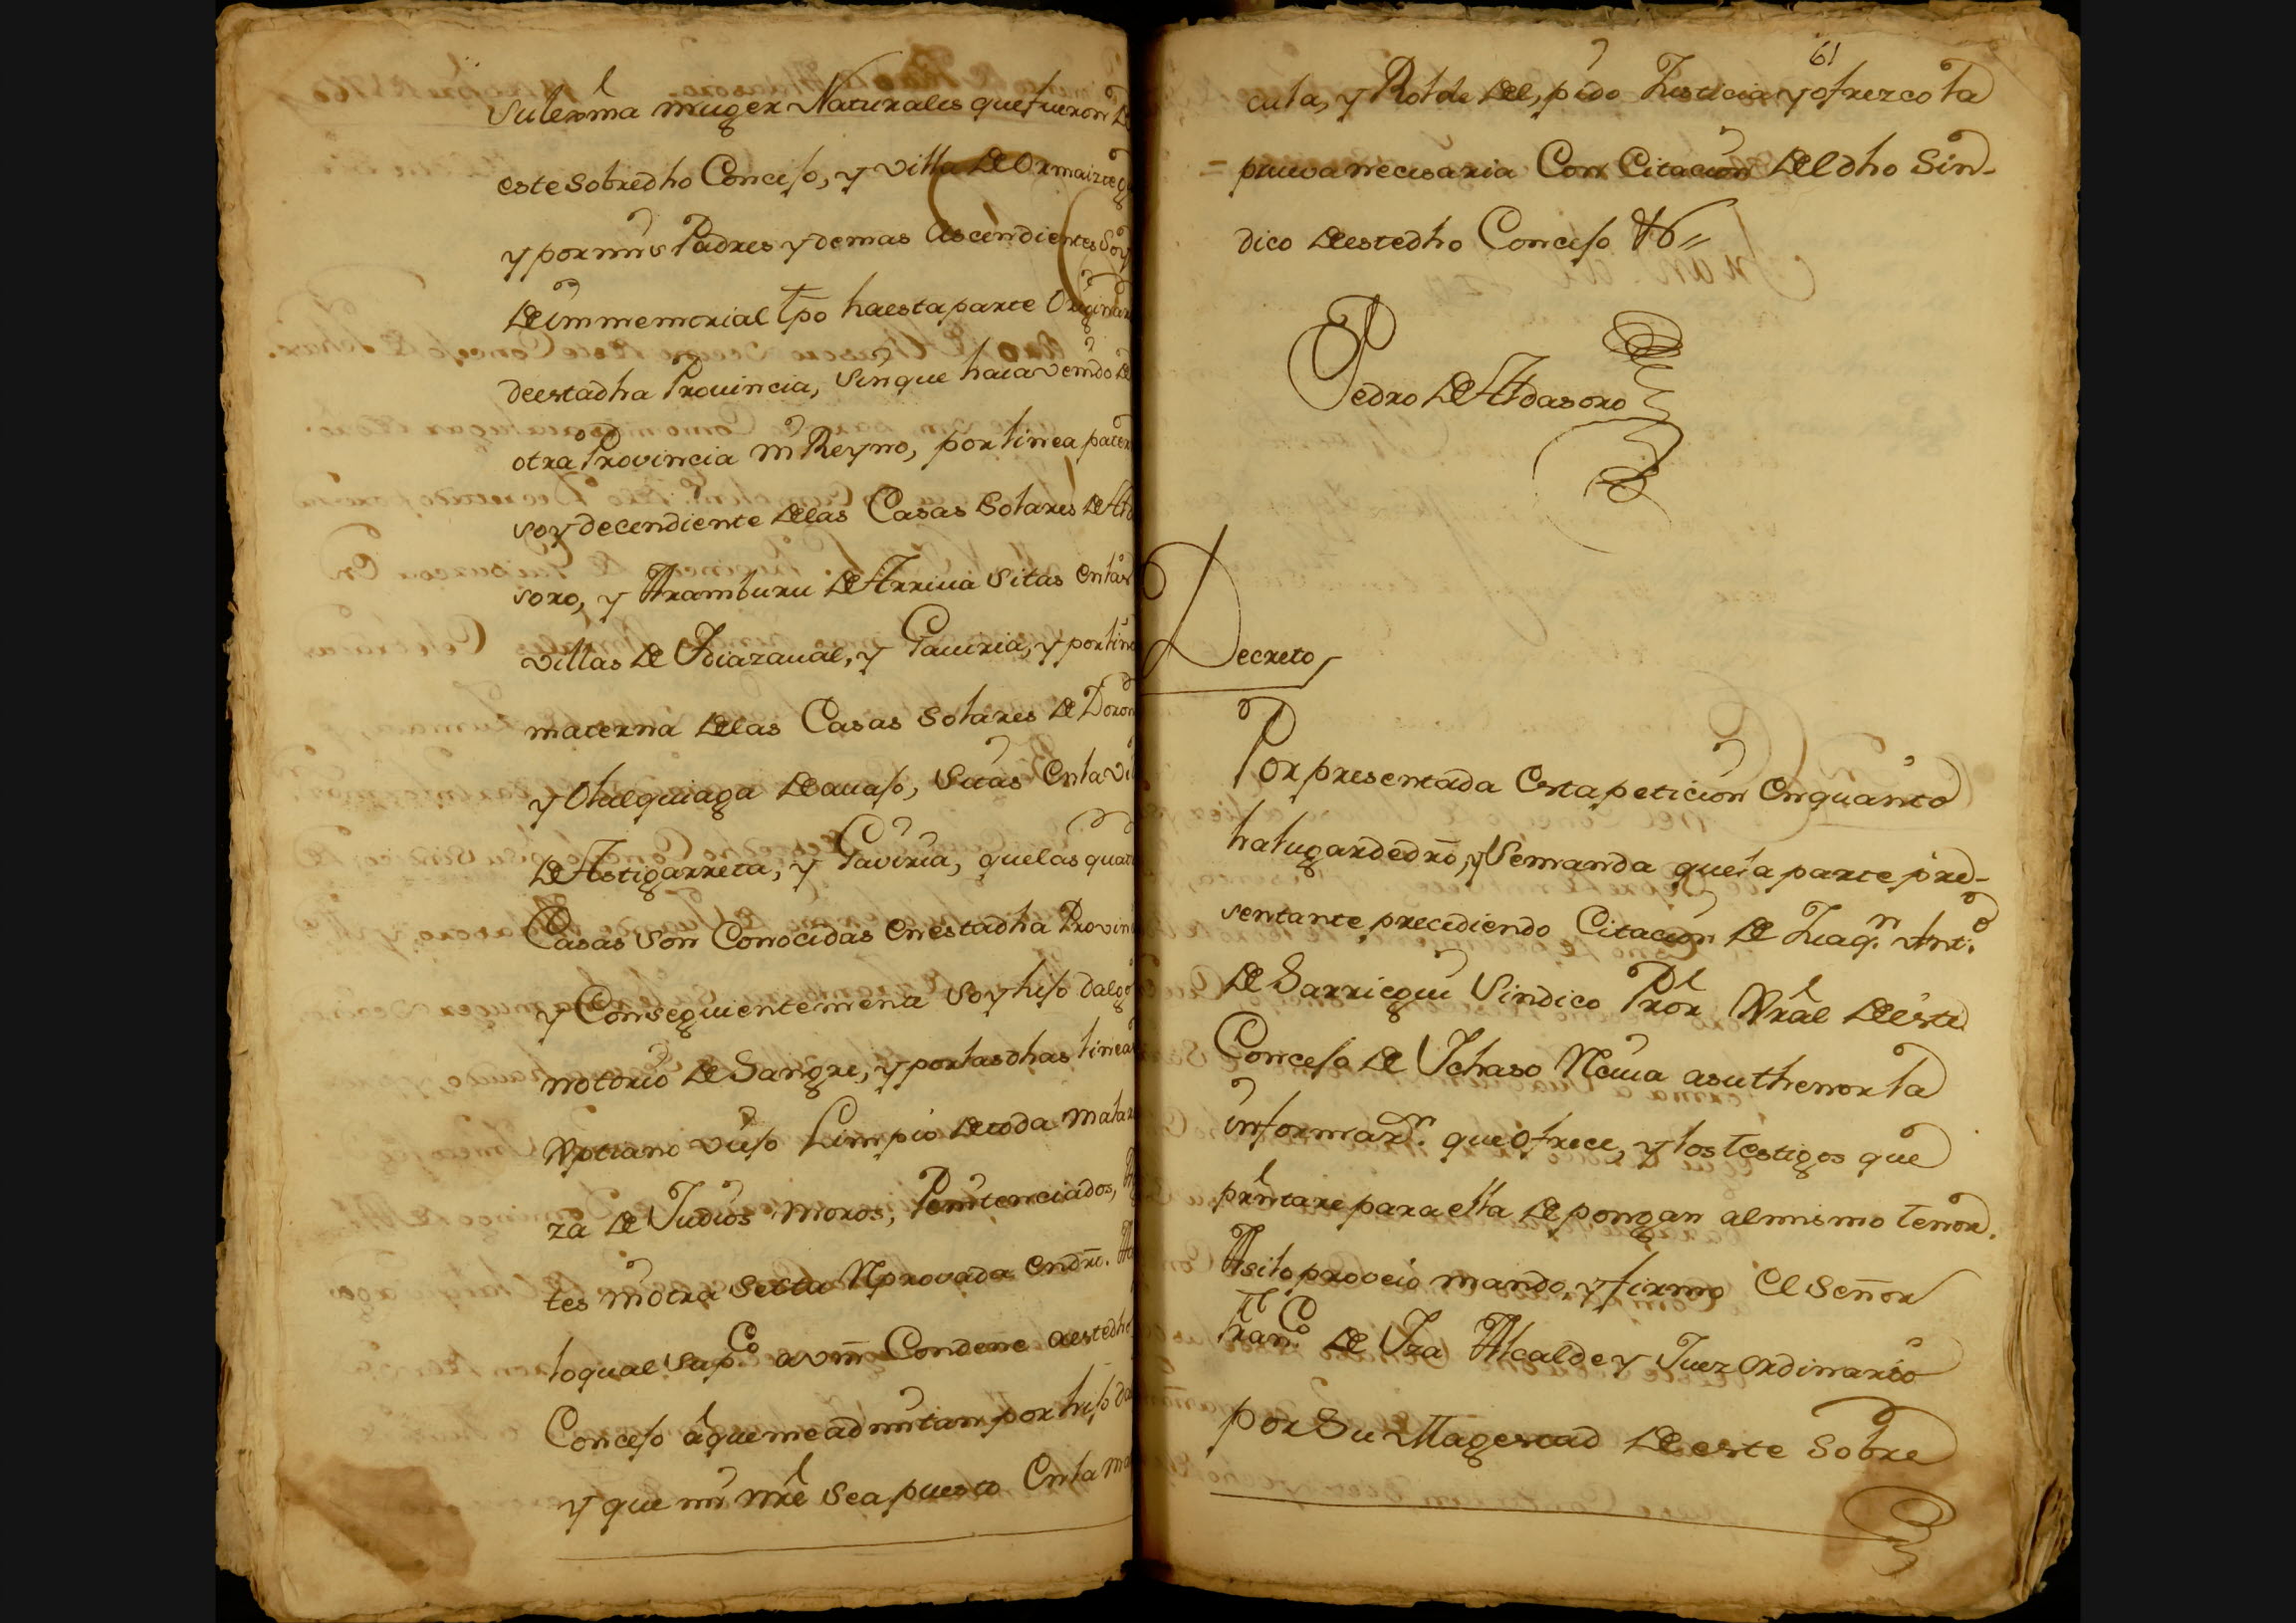 su lexma muger Naturales que fueron de
este sobredho Concejo, y villa de Ormaizteg
y por mis Padres y demas Ascendientes Soy
de immemorial tpo ha esta parte Originar
de esta dha Prouincia, sin que haia venido de
otra Provincia ni Reyno, por linea pater
soy decendiente de las Casas Solares de Ald
soro, y Aramburu de Arriua sitas en las
villas de Ydiazaual, y Gauiria, y por line
materna de las Casas Solares de Doron
y Olalquiaga de auajo, sitas en la vi
de Astigarreta, y Gaviria, que las quat
Casas son Conocidas en esta dha Provin
y Consequientemente soy hijo dalgo
notorio de Sangre, y por las dhas lineas
Xptiano viejo Limpio de toda mala ra
za de Judios Moros, Penitenciados, Ag
tes ni otra secta Reprovada en dro. A
lo qual supco a vm Condene a este dho
Concejo â que me admitan por hijo da
y que mi nre sea puesto en la ma
61
cula, y Rolde de el, pido Justicia y ofrezco la
= prueva necesaria Con Citacion de el dho Sin-
dico de este dho Concejo &ª //
Pedro de Aldasoro
Decreto
Por presentada esta peticion en quanto
ha lugar de dro, y se manda que la parte pre-
sentante precediendo Citacion de Juaqn. Anto.
de Sarriegui Sindico Pror Gral de este
Concejo de Ychaso Reciua a su thenor la
informazn. que ofrece, y los testigos que
prntare para ella depongan al mismo tenor.
Asi lo proveio mando, y firmo el Señor
Franco. de Yza Alcalde y Juez ordinario
por Su Magestad de este sobre